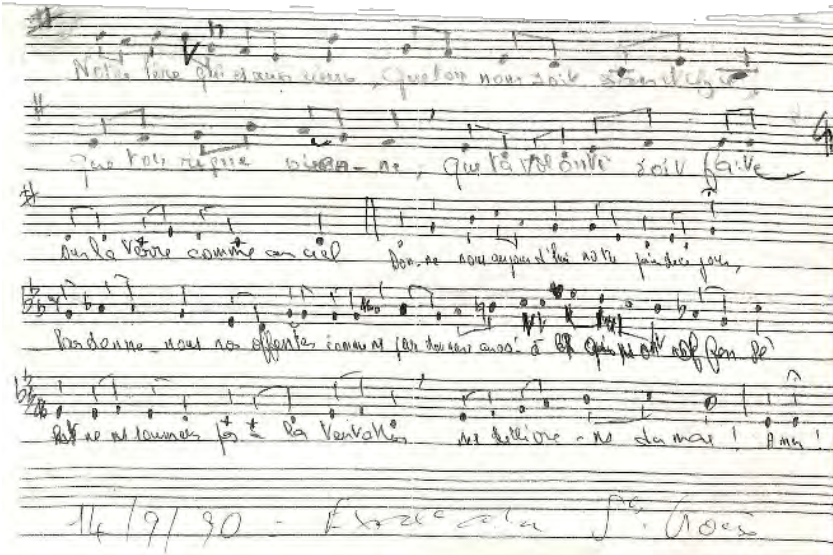 Notre Père qui es aux cieux, que ton nom soit sanctifié
que ton règne vien-ne, que ta volonté soit faite
sur la terre comme au ciel Don-ne nous aujourd'hui notre pain de ce jour,
Pardonne-nous nos offenses comme ns pardonnons aussi à qui ns ont offensé
ne ns soumets pas à la tentation ns délivre-ns du mal ! Amen !
14/9/90 - Ste Croix